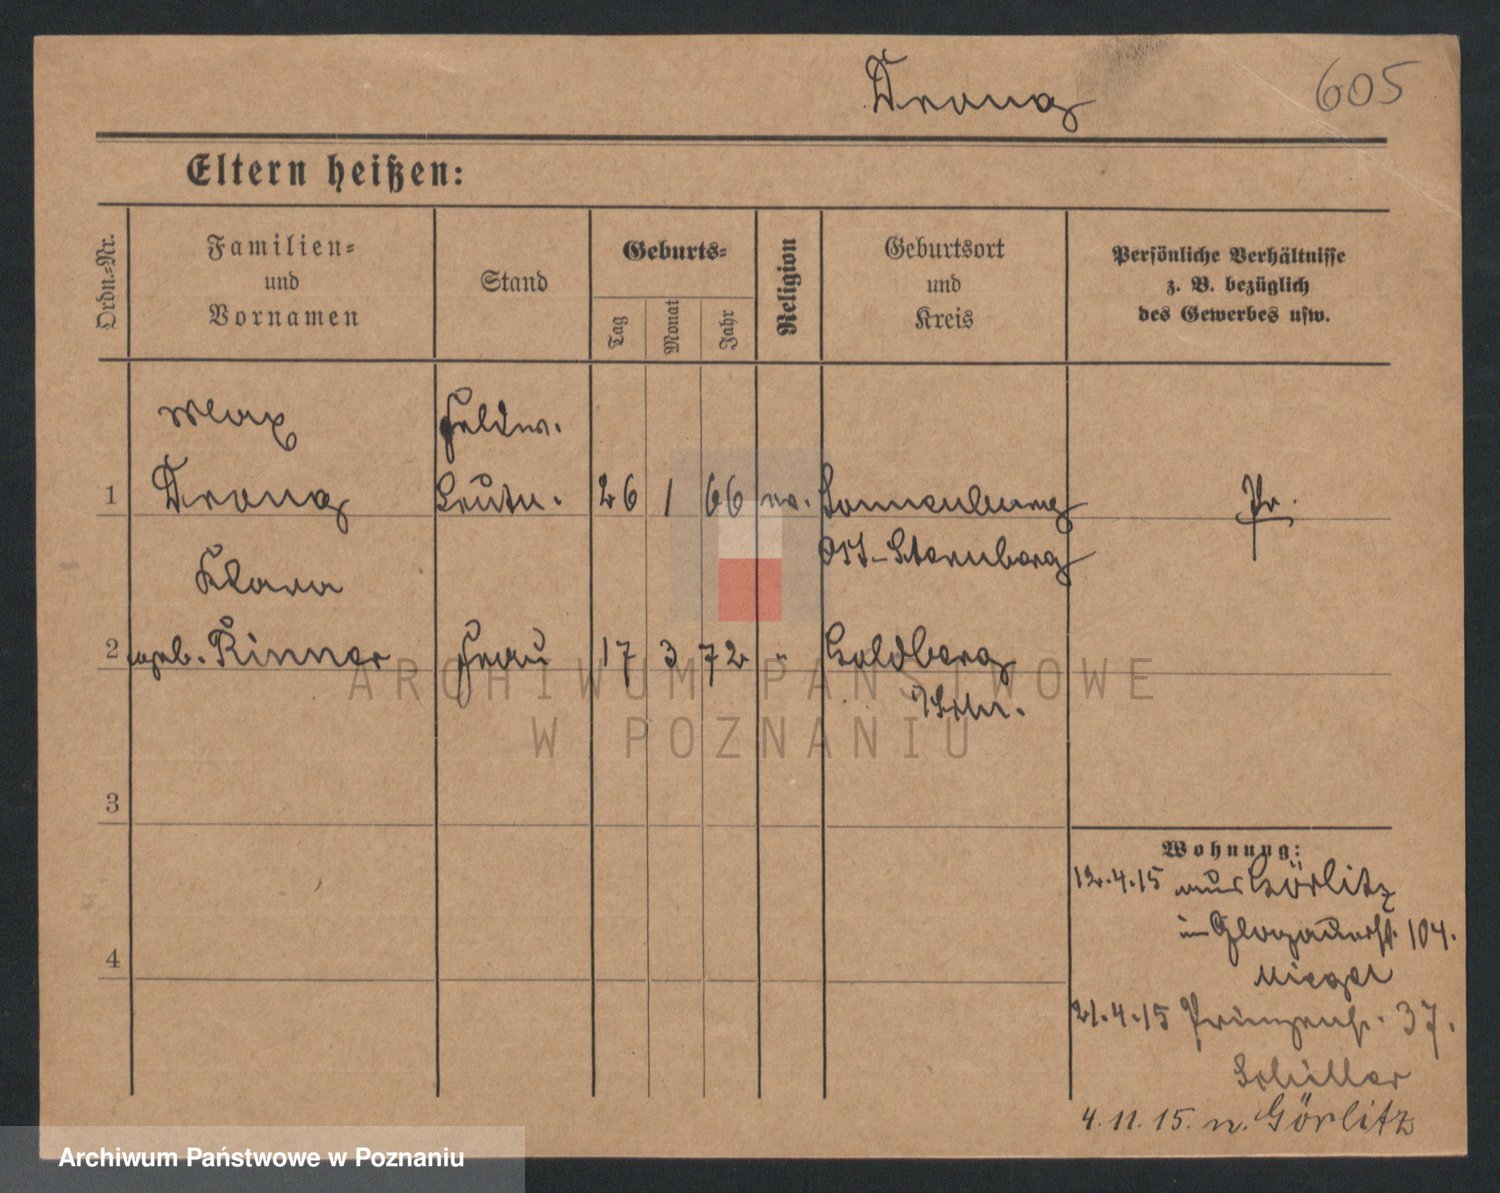 Drong
605
Eltern heißen:
Ordn.=Nr.
Familien=
und
Vornamen
Stand
Geburts=
Tag
Monat
Jahr
Religion
Geburtsort
und
Kreis
Persönliche Verhältnisse
z. B. bezüglich
des Gewerbes usw.
Max Feldw.
1 Drong Leutn. 26 1 66 ev. Sonnenburg Pr.
Ost-Sternberg
Klara
2 geb. Rinner Frau 17 3 72 " Goldberg
i/Schl.
3
4
Wohnung:
12.4.15 aus Görlitz
in Glogauerstr. 104.
Mieger
21.4.15 Prinzenstr. 37.
Schiller
4.11.15. n. Görlitz
ARCHIWUM PAŃSTWOWE
W POZNANIU
Archiwum Państwowe w Poznaniu